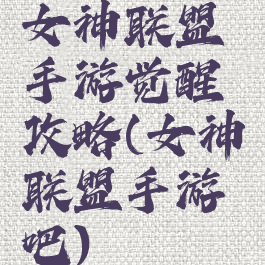 女神联盟
手游觉醒
攻略(女神
联盟手游
吧)